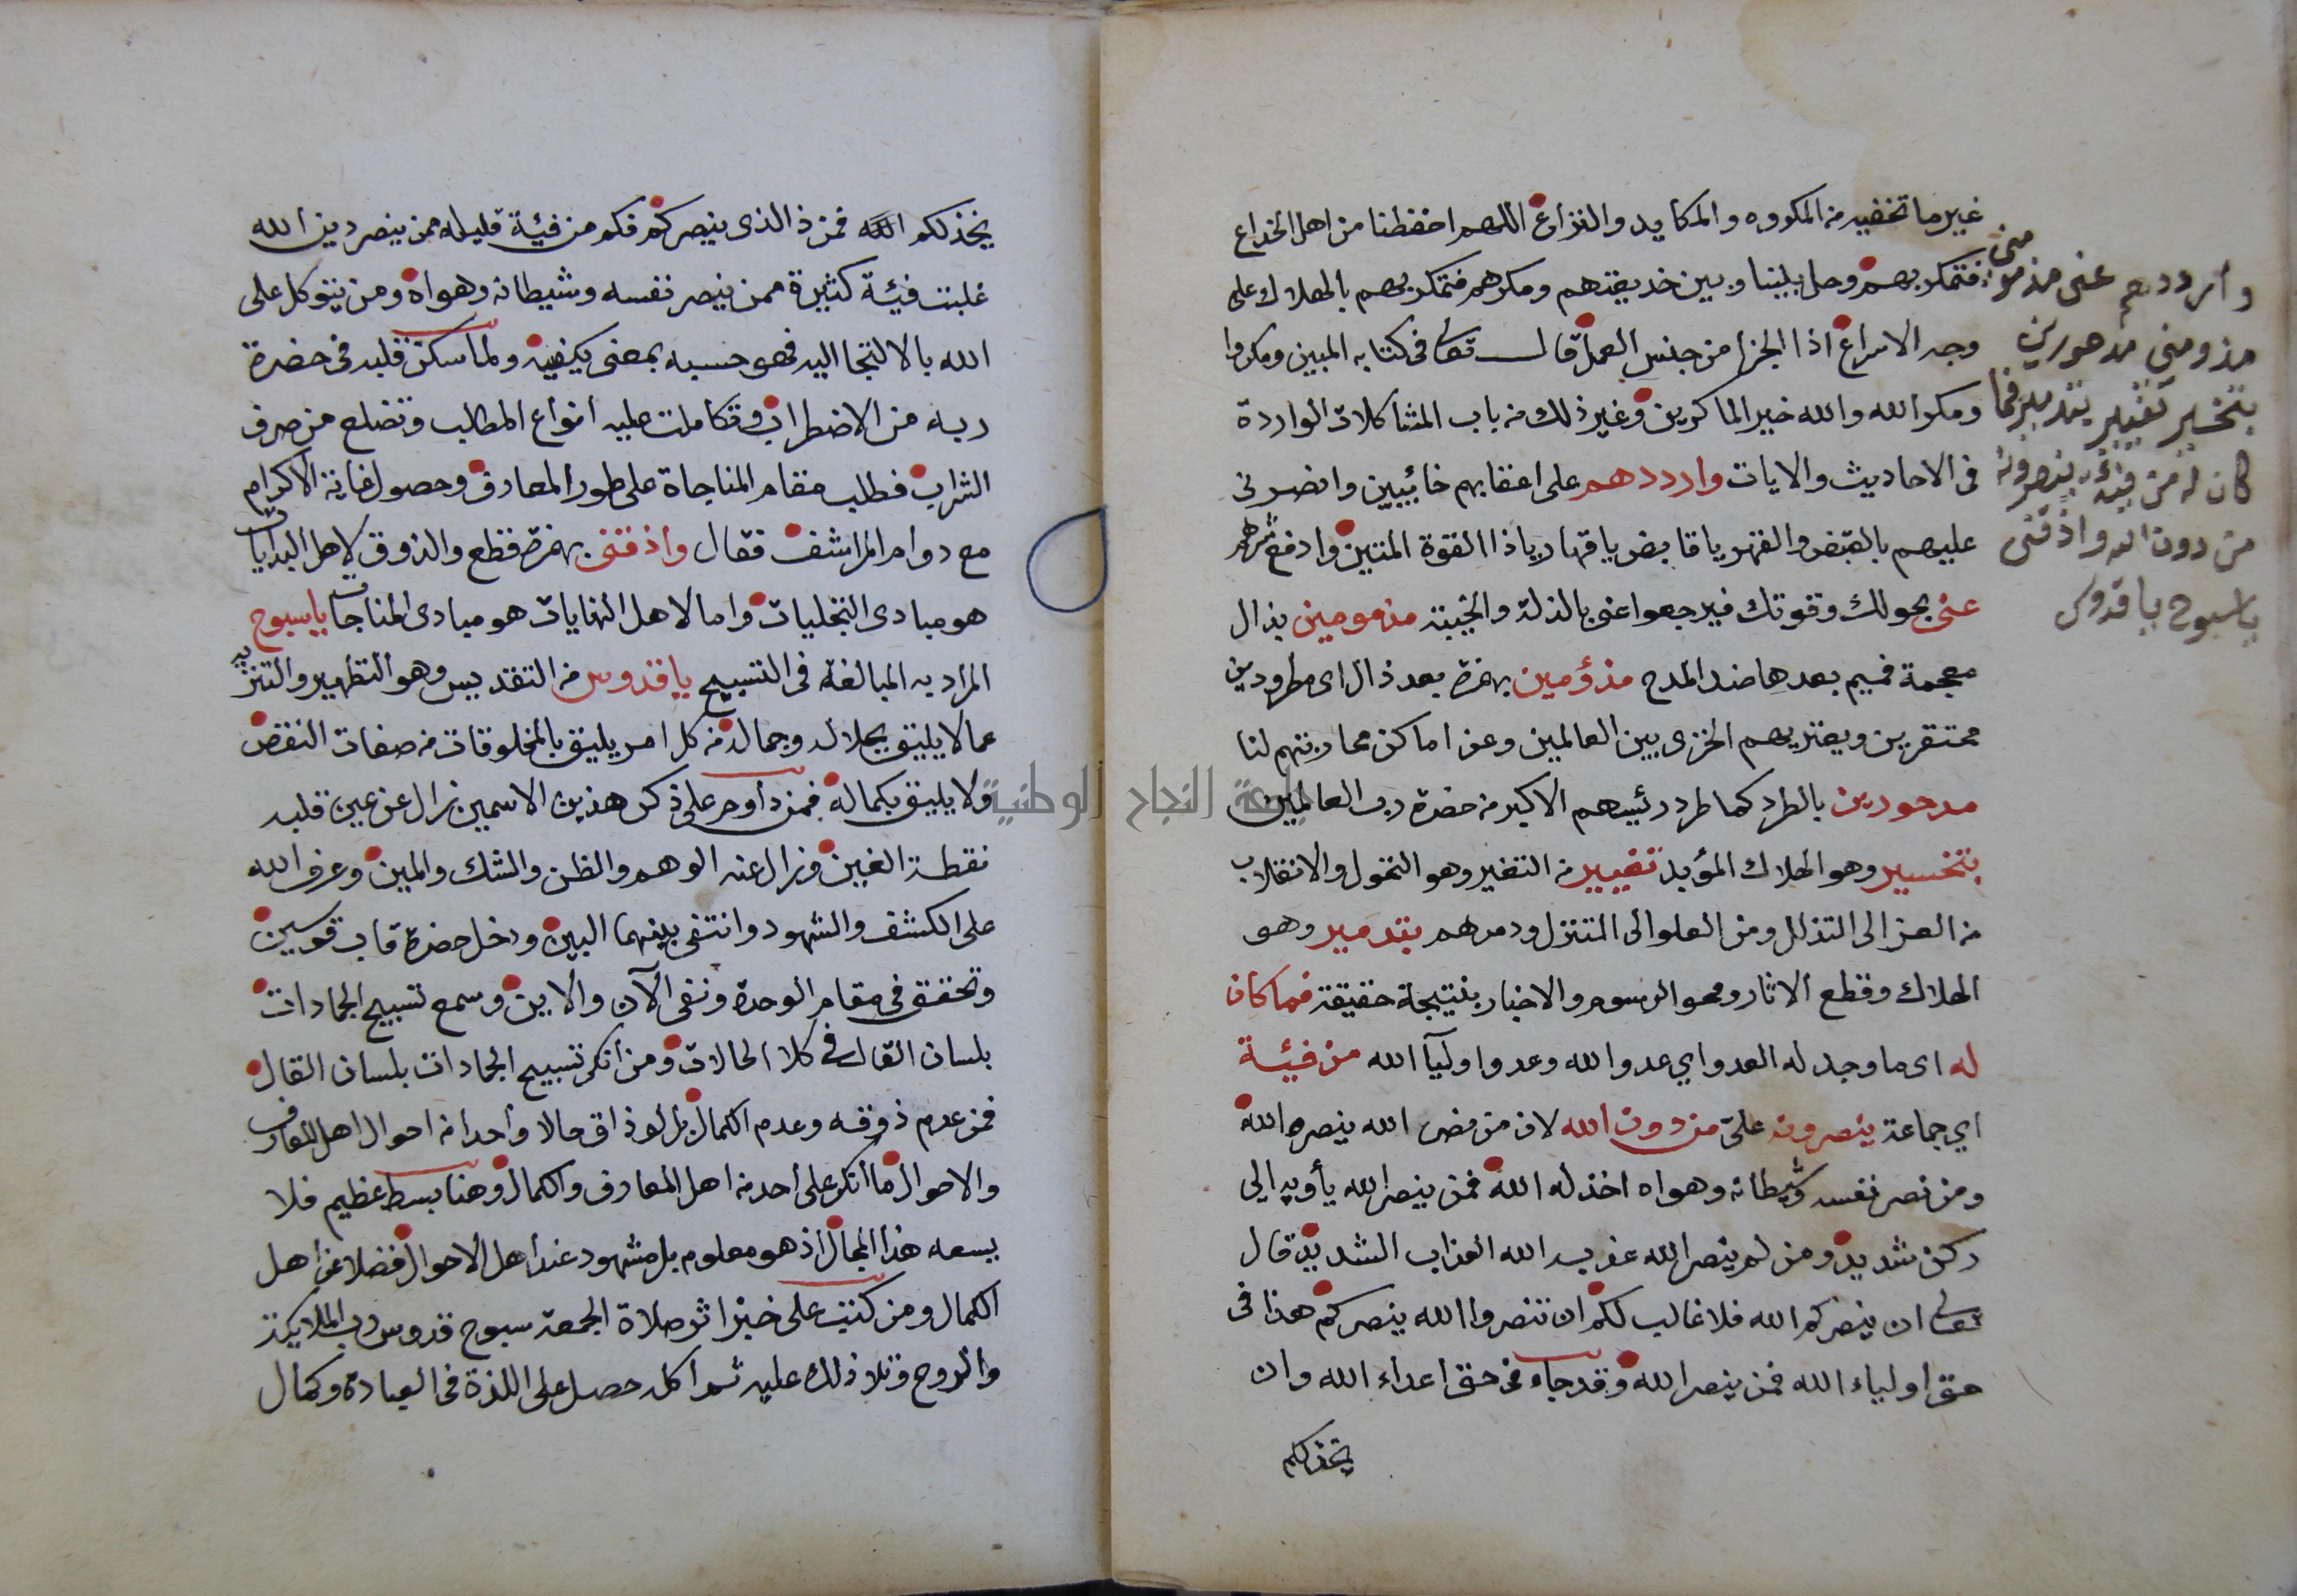 غير ما تخفيه من المكروه والمكايد والنزاع اللهم احفظنا من اهل الخداع
فتمكر بهم وحل بيننا وبين خديعتهم ومكرهم فتمكر بهم بالهلاك على
وجه الاسراع اذا الجزا من جنس العمل قال تعالى في كتابه المبين ومكروا
ومكر الله والله خير الماكرين وغير ذلك من باب المشاكلات الواردة
في الاحاديث والايات وارددهم على اعقابهم خائبين وانصرني
عليهم بالقبض والقهر يا قابض يا قهار يا ذا القوة المتين وادفع شرهم
عني بحولك وقوتك فيرجعوا عني بالذلة والخيبة مذمومين بذال
معجمة فميم بعدها ضد المدح مذؤمين بهمزة بعد ذال اى مطرودين
محتقرين ويعتريهم الخزى بين العالمين وعن اماكن محاربتهم لنا
مدحورين بالطرد كما طرد رئيسهم الاكبر من حضرة رب العالمين
بتخسير وهو الهلاك المؤبد تغيير من التغير وهو التحول والانقلاب
من العز الى التذلل ومن العلو الى التنزل ودمرهم بتدمير وهو
الهلاك وقطع الاثار ومحو الرسوم والاخبار بنتيجة حقيقة فما كان
له اى ما وجد له العدو اي عدو الله وعدو اوليآ الله من فيئة
اي جماعة ينصرونه علىّ من دون الله لان من نصر الله ينصره الله
ومن نصر نفسه وشيطانه وهواه اخذله الله فمن ينصر الله يأويه الى
ركن شديد ومن لم ينصر الله عذبه الله العذاب الشديد قال
تعالى ان ينصركم الله فلا غالب لكم ان تنصروا الله ينصركم هذا في
حق اولياء الله فمن ينصر الله وقد جاء في حق اعداء الله وان
يخذلكم
وارددهم عني مذمومين
مذومين مدحورين
بتخسير تغيير بتدمير فما
كان له من فيئة ينصرونه
من دون الله واذقني
يا سبوح يا قدوس
يخذلكم الله فمن ذا الذى ينصركم فكم من فيئة قليلة ممن ينصر دين الله
غلبت فيئة كثيرة ممن ينصر نفسه وشيطانه وهواه ومن يتوكل على
الله بالالتجا اليه فهو حسبه بمعنى يكفيه ولما سكن قلبه في حضرة
ربه من الاضطراب وتكاملت عليه انواع المطالب وتضلع من صرف
الشراب فطلب مقام المناجاة على طور المعارف وحصول غاية الاكرام
مع دوام المراشف فقال واذقني بهمزة قطع والذوق لاهل البدايات
هو مبادى التجليات واما لاهل النهايات هو مبادى المناجات يا سبوح
المراد به المبالغة في التسبيح يا قدوس من التقديس وهو التطهير والتنزيه
عما لا يليق بجلاله وجماله من كل امر يليق بالمخلوقات من صفات النقض
ولا يليق بكماله فمن داوم على ذكر هذين الاسمين زال عن عين قلبه
نقطة الغين وزال عنه الوهم والظن والشك والمين وعرف الله
على الكشف والشهود وانتفى بينهما البين ودخل حضرة قاب قوسين
وتحقق في مقام الوحدة ونفى الآن والاين وسمع تسبيح الجمادات
بلسان القال في كلا الحالات ومن انكر تسبيح الجمادات بلسان القال
فمن عدم ذوقه وعدم الكمال بل لو ذاق حالا واحدا من احوال اهل المعارف
والاحوال ما انكر على احد من اهل المعارف والكمال وهنا بسط عظيم فلا
يسعه هذا المجال اذ هو معلوم بل مشهود عند اهل الاحوال فضلا عن اهل
الكمال ومن كتب على خبز اثر صلاة الجمعة سبوح قدوس رب الملايكة
والروح وتلا ذلك عليه ثم اكله حصل على اللذة في العبادة وكمال
جامعة النجاح الوطنية